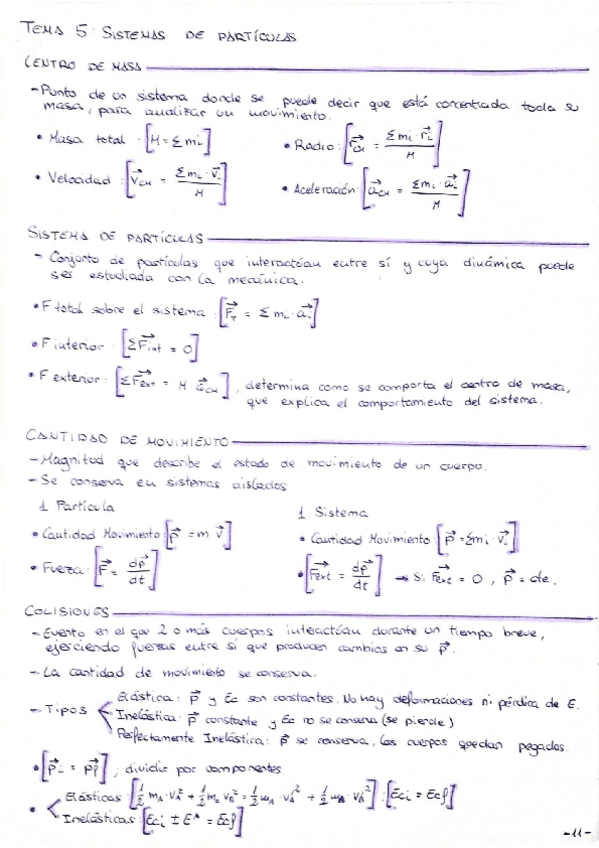 TEMA 5: SISTEMAS DE PARTÍCULAS
CENTRO DE MASA
- Punto de un sistema donde se puede decir que está concentrada toda su
masa, para analizar un movimiento.
• Masa total : [M = Σ mi]
• Radio : [r⃗CM = Σ mi · r⃗i / M]
• Velocidad : [v⃗CM = Σ mi · v⃗i / M]
• Aceleración : [a⃗CM = Σ mi · a⃗i / M]
SISTEMA DE PARTÍCULAS
- Conjunto de partículas que interactúan entre sí y cuya dinámica puede
ser estudiada con la mecánica.
• F total sobre el sistema : [F⃗T = Σ mi · a⃗i]
• F interior : [Σ F⃗int = 0]
• F exterior : [Σ F⃗ext = M a⃗CM], determina como se comporta el centro de masa,
que explica el comportamiento del sistema.
CANTIDAD DE MOVIMIENTO
- Magnitud que describe el estado de movimiento de un cuerpo.
- Se conserva en sistemas aislados
1 Partícula
• Cantidad Movimiento : [p⃗ = m v⃗]
• Fuerza : [F⃗ = dp⃗/dt]
1 Sistema
• Cantidad Movimiento : [p⃗ = Σ mi · v⃗i]
• [F⃗ext = dp⃗/dt] → Si F⃗ext = 0 , p⃗ = cte.
COLISIONES
- Evento en el que 2 o más cuerpos interactúan durante un tiempo breve,
ejerciendo fuerzas entre sí que producen cambios en su p⃗.
- La cantidad de movimiento se conserva.
- Tipos
Elástica : p⃗ y Ec son constantes. No hay deformaciones ni pérdida de E.
Inelástica : p⃗ constante y Ec no se conserva (se pierde)
Perfectamente Inelástica : p⃗ se conserva, los cuerpos quedan pegados.
• [p⃗i = p⃗f] ; dividir por componentes
• Elásticas : [1/2 mA · vA² + 1/2 mB · vB² = 1/2 mA · vA'² + 1/2 mB · vB'²] : [Eci = Ecf]
Inelásticas : [Eci ± E* = Ecf]
-11-